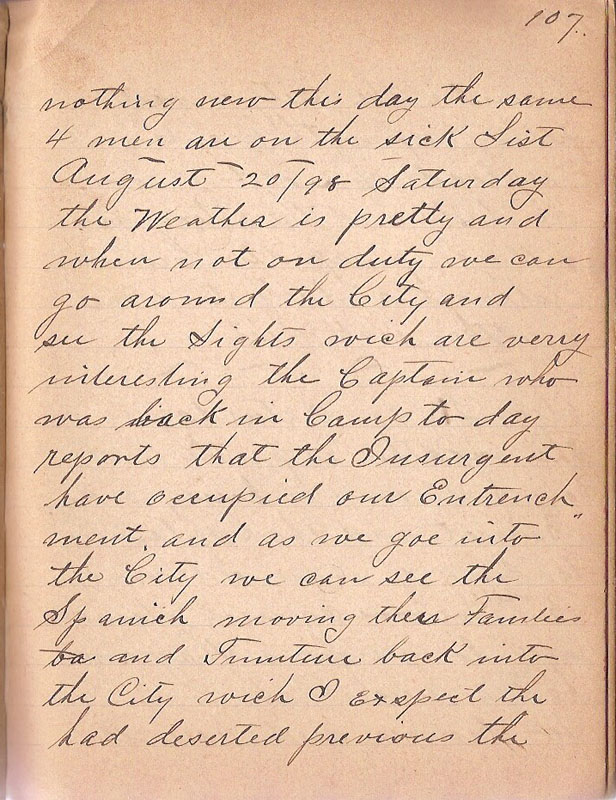 107.
nothing new this day the same
4 men are on the sick List
August 20/98 Saturday
the Weather is pretty and
when not on duty we can
go around the City and
see the Sights wich are verry
interesting the Captain who
was back in Camp to day
reports that the Insurgent
have occupied our Entrench"
ment. and as we goe into
the City we can see the
Spanich moving ther Families
ba and Furniture back into
the City wich I Exspect the
had deserted previous the